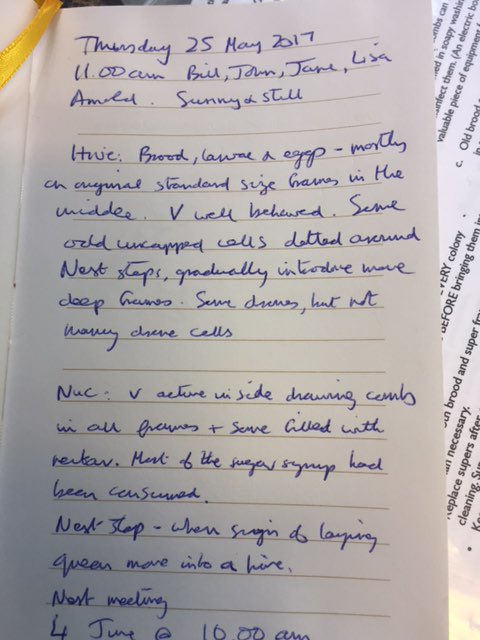 Thursday 25 May 2017
11.00am Bill, John, Jane, Lisa
Arnold. Sunny & still
Hive: Brood, larvae & eggs - mostly
on original standard size frames in the
middle. V well behaved. Some
odd uncapped cells dotted around
Next steps, gradually introduce more
deep frames. Some drones, but not
many drone cells
Nuc: V active inside drawing combs
in all frames + some filled with
nectar. Most of the sugar syrup had
been consumed.
Next step - when sign of laying
queen move into a hive.
Next meeting
4 June @ 10.00 am
mbs can
ed in soapy washin
infect them. (An electric bo
valuable piece of equipment f
c. Old brood
EVERY colony
BEFORE bringing them in
brood and super fra
necessary.
Replace supers after
cleaning.